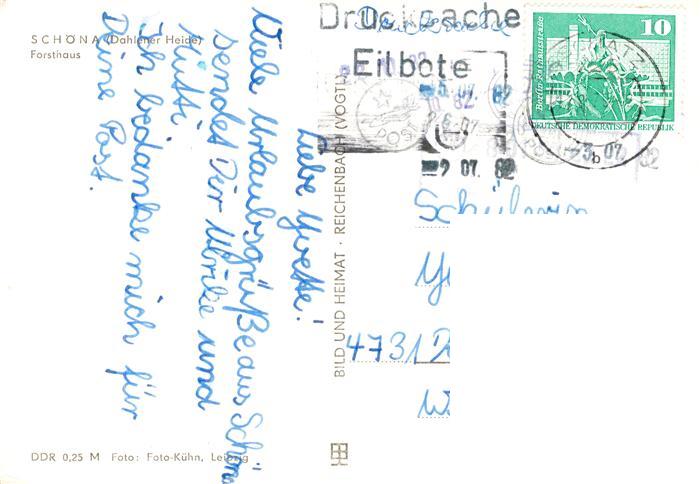 SCHÖNA (Dahlener Heide)
Forsthaus
Liebe Yvette!
Viele Urlaubsgrüße aus Schöna
sendet Dir Ulrike und
Mutti
Ich bedanke mich für
Deine Post.
DDR 0,25 M Foto: Foto-Kühn, Leipzig
BILD UND HEIMAT · REICHENBACH (VOGTL)
Drucksache
Eilbote
-5. 07. 82
-9 07. 82
-3. 07.
82
b
10
Berlin·Rathausstraße
DEUTSCHE DEMOKRATISCHE REPUBLIK
Schülerin
4731